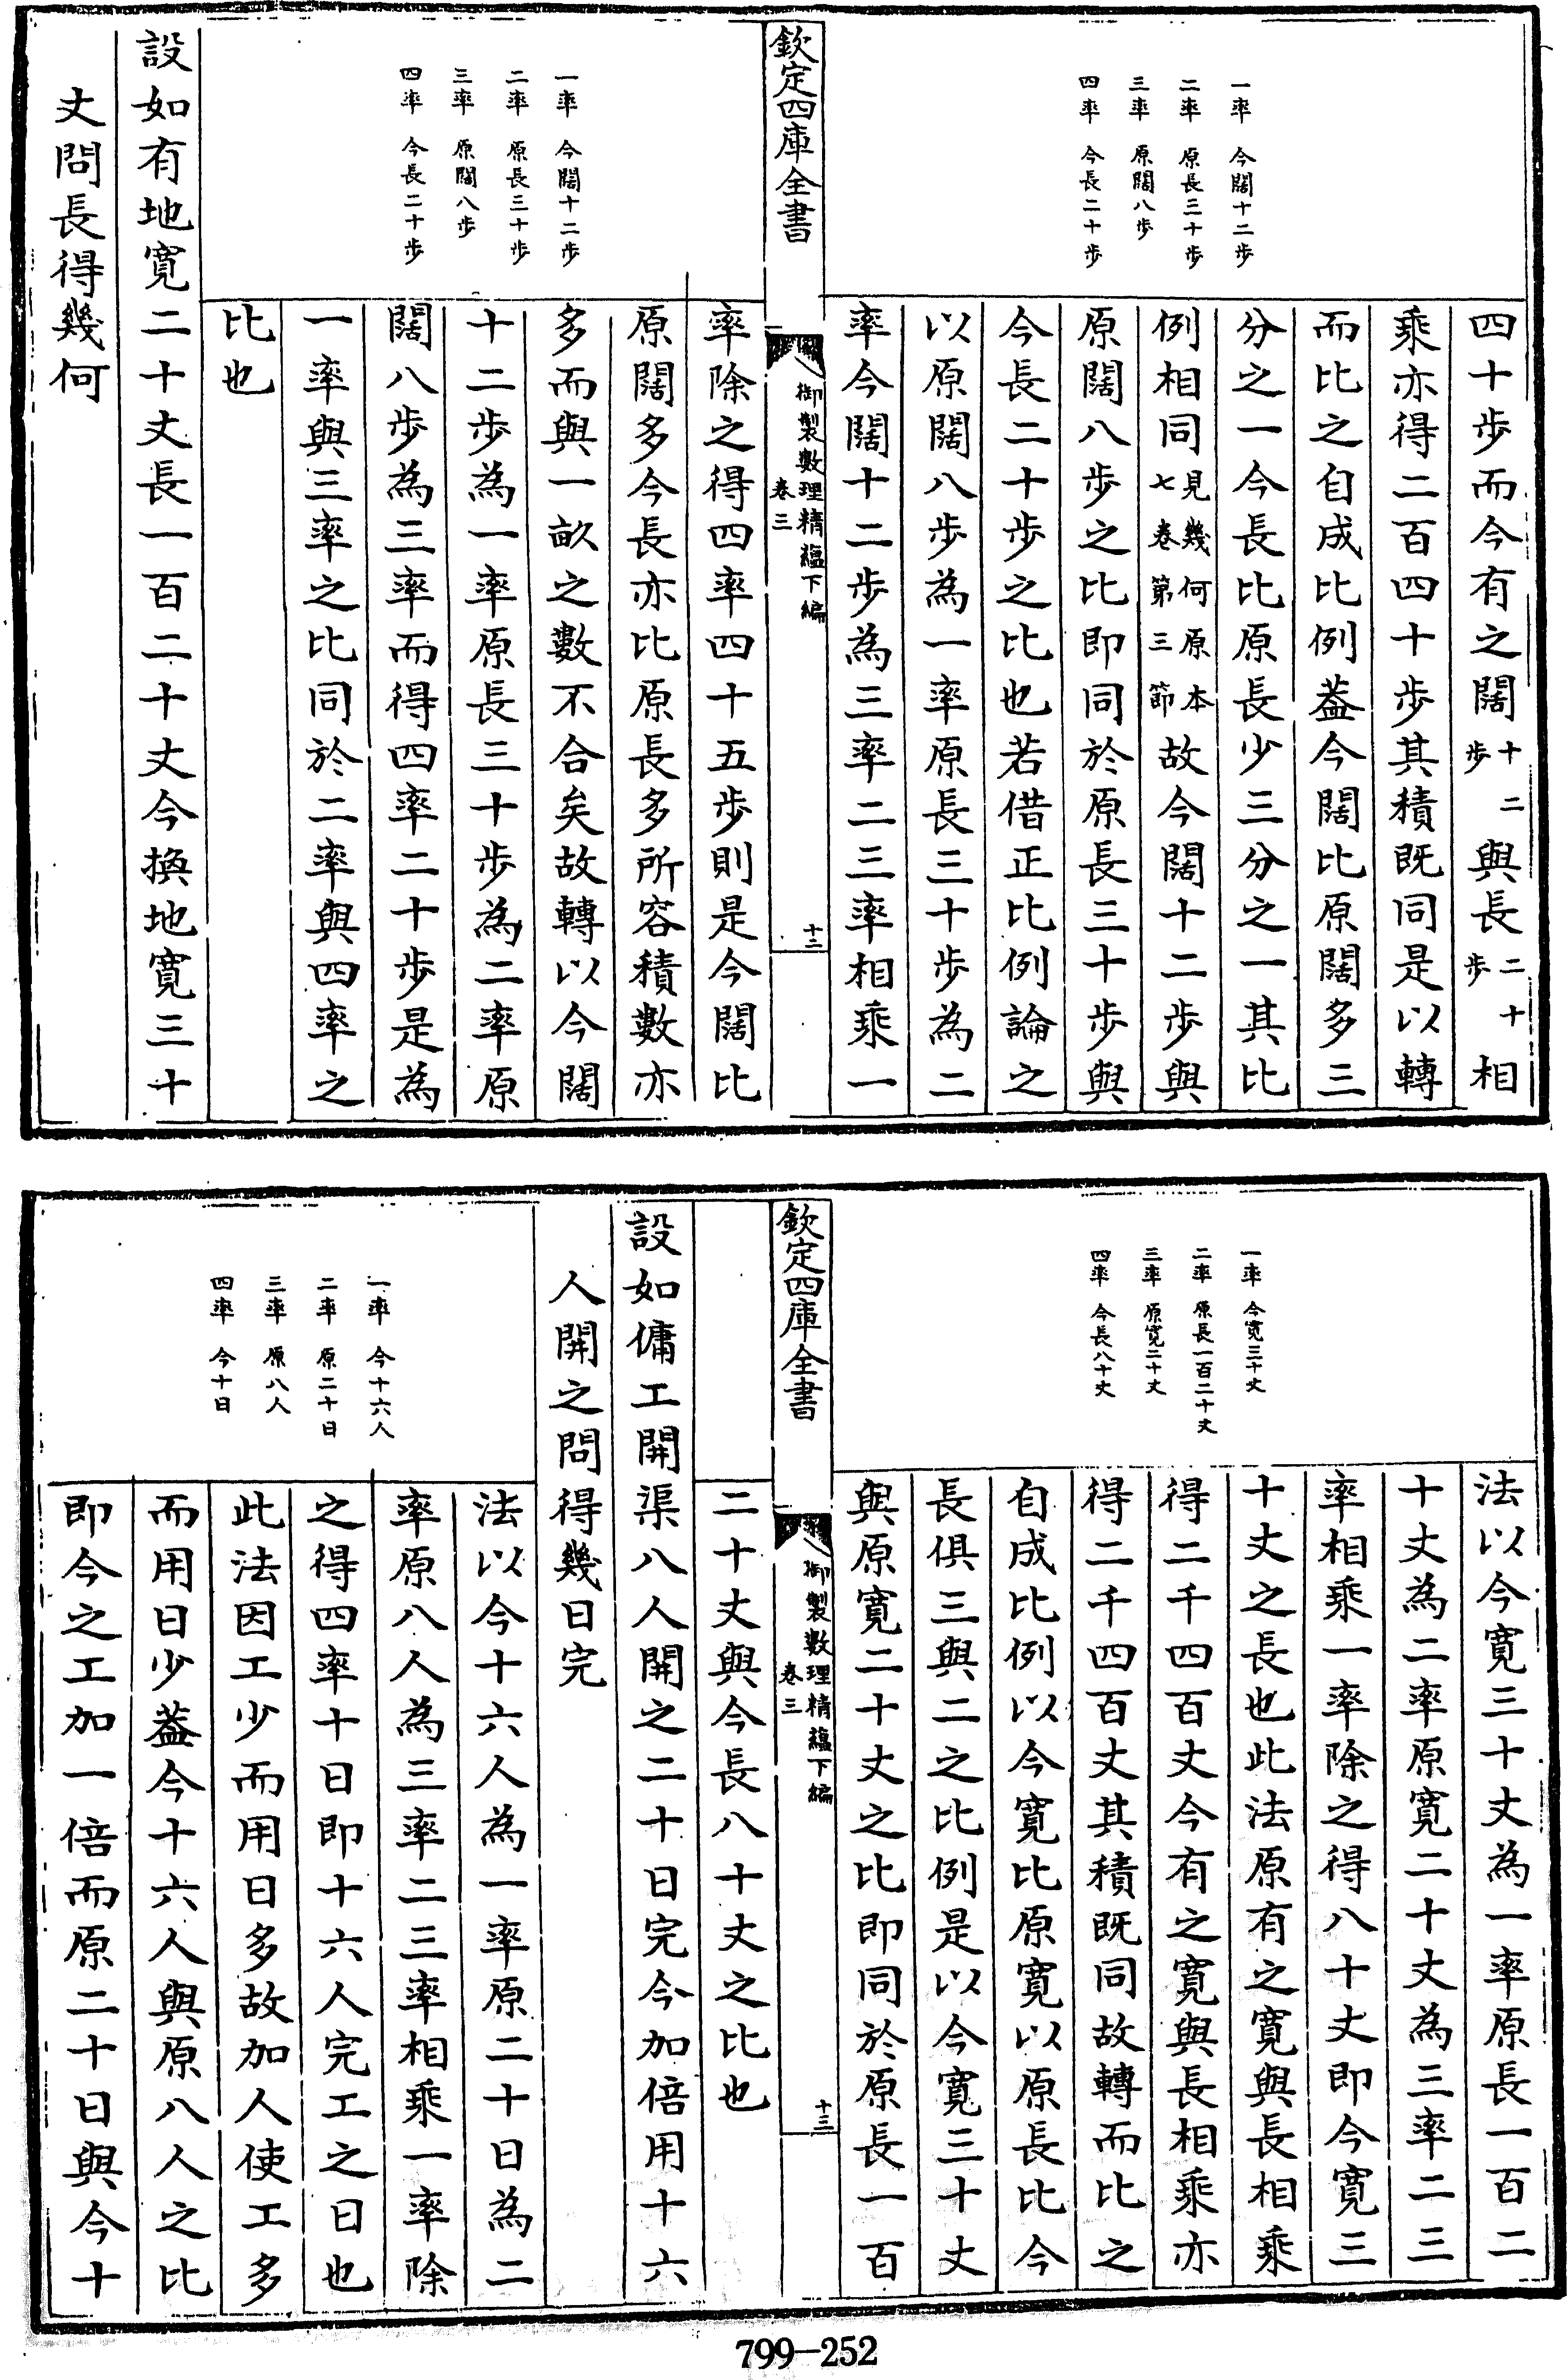 一率 今闊十二步
二率 原長三十步
三率 原闊八步
四率 今長二十步
四十步而今有之闊十二步與長二十步相
乘亦得二百四十步其積既同是以轉
而比之自成比例葢今闊比原闊多三
分之一今長比原長少三分之一其比
例相同見幾何原本七卷第三節故今闊十二步與
原闊八步之比即同於原長三十步與
今長二十步之比也若借正比例論之
以原闊八步為一率原長三十步為二
率今闊十二步為三率二三率相乘一
欽定四庫全書
御製數理精蘊下編
卷三
十二
一率 今闊十二步
二率 原長三十步
三率 原闊八步
四率 今長二十步
率除之得四率四十五步則是今闊比
原闊多今長亦比原長多所容積數亦
多而與一畝之數不合矣故轉以今闊
十二步為一率原長三十步為二率原
闊八步為三率而得四率二十步是為
一率與三率之比同於二率與四率之
比也
設如有地寬二十丈長一百二十丈今換地寬三十
丈問長得幾何
一率 今寬三十丈
二率 原長一百二十丈
三率 原寬二十丈
四率 今長八十丈
法以今寬三十丈為一率原長一百二
十丈為二率原寬二十丈為三率二三
率相乘一率除之得八十丈即今寬三
十丈之長也此法原有之寬與長相乘
得二千四百丈今有之寬與長相乘亦
得二千四百丈其積既同故轉而比之
自成比例以今寬比原寬以原長比今
長俱三與二之比例是以今寬三十丈
與原寬二十丈之比即同於原長一百
欽定四庫全書
御製數理精蘊下編
卷三
十三
二十丈與今長八十丈之比也
設如傭工開渠八人開之二十日完今加倍用十六
人開之問得幾日完
一率 今十六人
二率 原二十日
三率 原八人
四率 今十日
法以今十六人為一率原二十日為二
率原八人為三率二三率相乘一率除
之得四率十日即十六人完工之日也
此法因工少而用日多故加人使工多
而用日少葢今十六人與原八人之比
即今之工加一倍而原二十日與今十
799-252